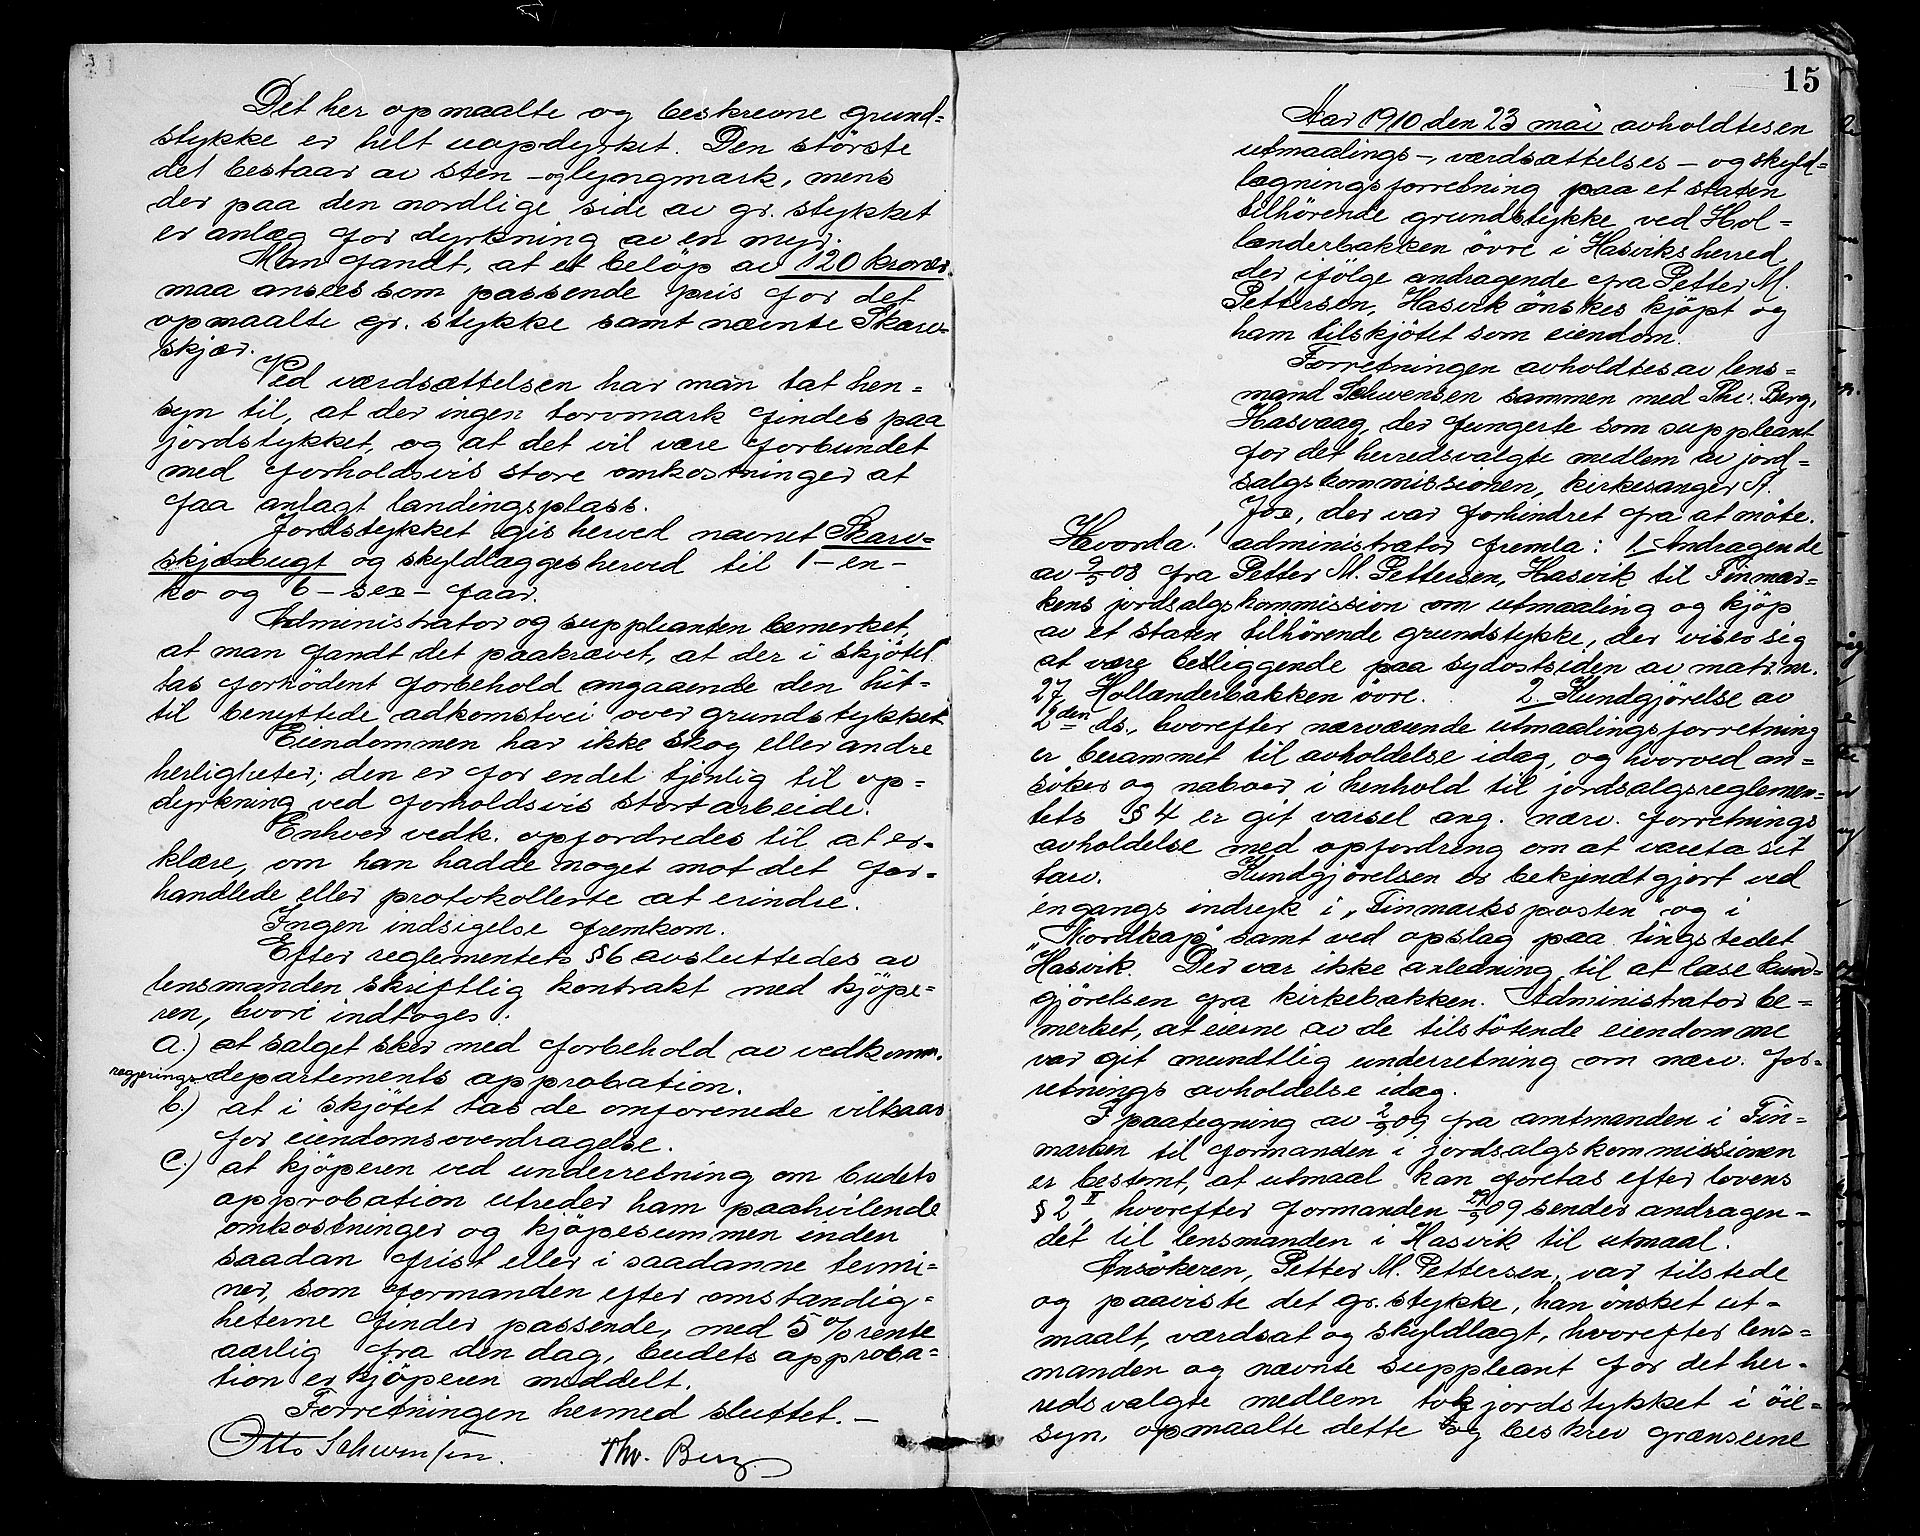 Det her opmaalte og beskrevne grund-
stykke er helt uopdyrket. Den største
del bestaar av sten - og lyngmark, mens
der paa den nordlige side av gr. stykket
er anlæg for dyrkning av en myr.
Man fandt, at et beløp av 120 kroner
maa ansees som passende pris for det
opmaalte gr. stykke samt nævnte Skarv-
skjær.
Ved værdsættelsen har man tat hen-
syn til, at der ingen torvmark findes paa
jordstykket, og at det vil være forbundet
med forholdsvis store omkostninger at
faa anlagt landingsplass.
Jordstykket gis herved navnet Skarv-
skjærbugt og skyldlægges herved til 1 - en -
ko og 6 - sex - faar.
Administrator og suppleanten bemerket,
at man fandt det paakrævet, at der i skjøtet
tas fornødent forbehold angaaende den hit-
til benyttede adkomstvei over grundstykket.
Eiendommen har ikke skog eller andre
herligheter; den er for endel tjenlig til op-
dyrkning ved forholdsvis stort arbeide.
Enhver vedk. opfordredes til at er-
klære, om han hadde noget mot det for-
handlede eller protokollerte at erindre.
Ingen indsigelse fremkom.
Efter reglementets §6 avsluttedes av
lensmanden skriftlig kontrakt med kjøpe-
ren, hvori indtoges:
a.) at salget sker med forbehold av vedkomm.
regjerings-departements approbation.
b.) at i skjøtet tas de omforenede vilkaar
for eiendomsoverdragelse.
c.) at kjøperen ved underretning om budets
approbation utreder ham paahvilende
omkostninger og kjøpesummen inden
saadan frist eller i saadanne termi-
ner, som formanden efter omstændig-
heterne finder passende, med 5 % rente
aarlig fra den dag, budets approba-
tion er kjøperen meddelt.
Forretningen hermed sluttet. -
Otto Schwensen. Thv. Berg.
15
Aar 1910 den 23 mai avholdtes en
utmaalings-, værdsættelses - og skyld-
lægningsforretning paa et staten
tilhørende grundstykke ved Hol-
lænderbakken øvre i Hasviks herred,
der ifølge andragende fra Petter M.
Pettersen, Hasvik ønskes kjøpt og
ham tilskjøtet som eiendom.
Forretningen avholdtes av lens-
mand Schwensen sammen med Thv. Berg,
Hasvaag, der fungerte som suppleant
for det herredsvalgte medlem av jord-
salgskommissionen, kirkesanger A.
Fox, der var forhindret fra at møte.
Hvorda! administrator fremla: 1. Andragende
av 2/5 08 fra Petter M. Pettersen, Hasvik til Finmar-
kens jordsalgskommission om utmaaling og kjøp
av et staten tilhørende grundstykke, der viser sig
at være beliggende paa sydostsiden av matr. nr.
27, Hollænderbakken øvre. 2. Kundgjørelse av
2den ds., hvorefter nærværende utmaalingsforretning
er berammet til avholdelse idag, og hvorved an-
søker og naboer i henhold til jordsalgsreglemen-
tets §4 er git varsel ang. nærv. forretnings
avholdelse med opfordring om at vareta sit
tarv. Kundgjørelsen er bekjendtgjort ved
engangs indryk i „Finmarksposten" og i
„Nordkap" samt ved opslag paa tingstedet
Hasvik. Der var ikke anledning til at læse kund-
gjørelsen fra kirkebakken. Administrator be-
merket, at eierne av de tilstøtende eiendomme
var git mundtlig underretning om nærv. for-
retnings avholdelse idag.
I paategning av 2/9 09 fra amtmanden i Fin-
marken til formanden i jordsalgskommissionen
er bestemt, at utmaal kan foretas efter lovens
§ 2, II hvorefter formanden 29/9 09 sender andragen-
det til lensmanden i Hasvik til utmaal.
Ansøkeren, Petter M. Pettersen, var tilstede
og paaviste det gr. stykke, han ønsket ut-
maalt, værdsat og skyldlagt, hvorefter lens-
manden og nævnte suppleant for det her-
redsvalgte medlem tok jordstykket i øie-
syn, opmaalte dette og beskrev grænserne